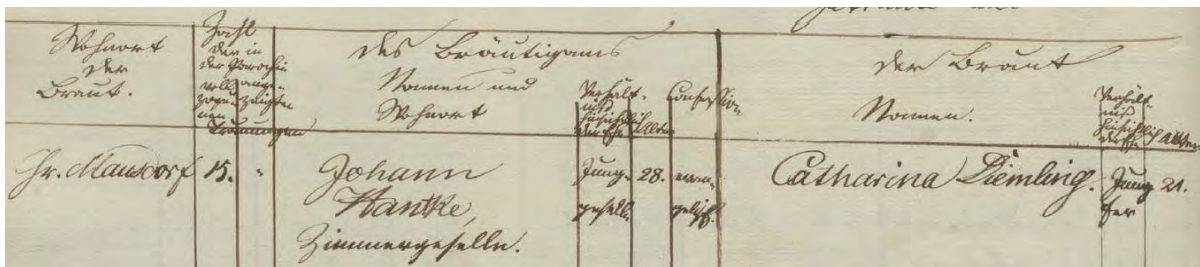 Wohnort
der
Braut.
Zahl
der in
der Parochie
voll- ange-
zoge- zeigten
nen
Trauungen
des Bräutigams
Namen und
Wohnort
Verhält-
niß
hinsichtlich
der Ehe
Alter
Confession
der Braut
Namen.
Verhält-
niß
hinsichtlich
der Ehe
Alter
Gr. Mausdorf 15. "
Johann
Hantke,
Zimmergeselle.
Jung-
gesell.
28.
evan-
gelisch.
Catharina Diemling.
Jung
fer
21.